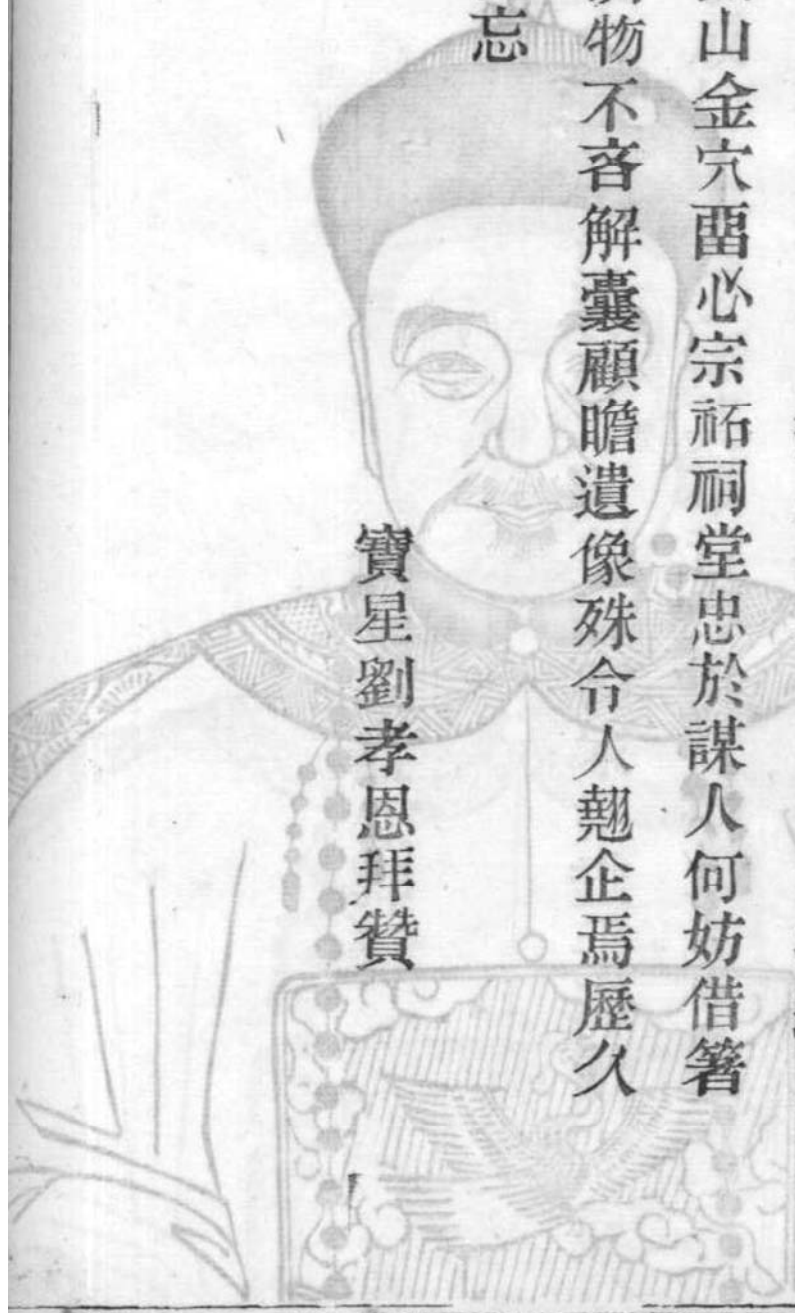 山金穴畱心宗祏祠堂忠於謀人何妨借箸
物不吝解囊顧瞻遺像殊令人翹企焉歷久
忘
寶星劉孝恩拜贊